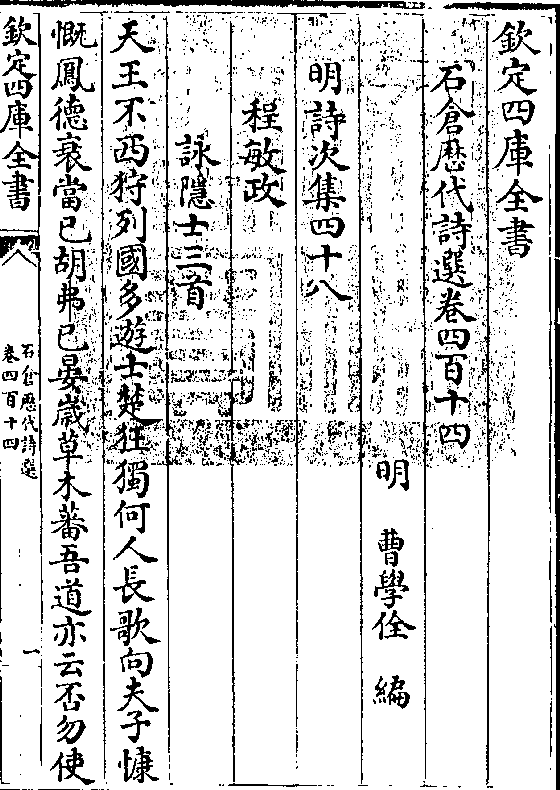 欽定四庫全書
石倉歷代詩選卷四百十四
明 曹學佺 編
明詩次集四十八
程敏政
詠隱士三首
天王不西狩列國多遊士楚狂獨何人長歌向夫子慷
慨鳳德衰當已胡弗已晏歲草木蕃吾道亦云否勿使
欽定四庫全書
石倉歷代詩選
卷四百十四
一